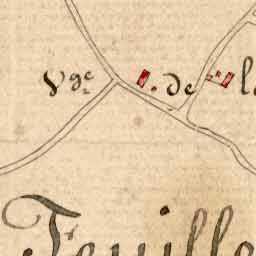 Vge de l
Feuille